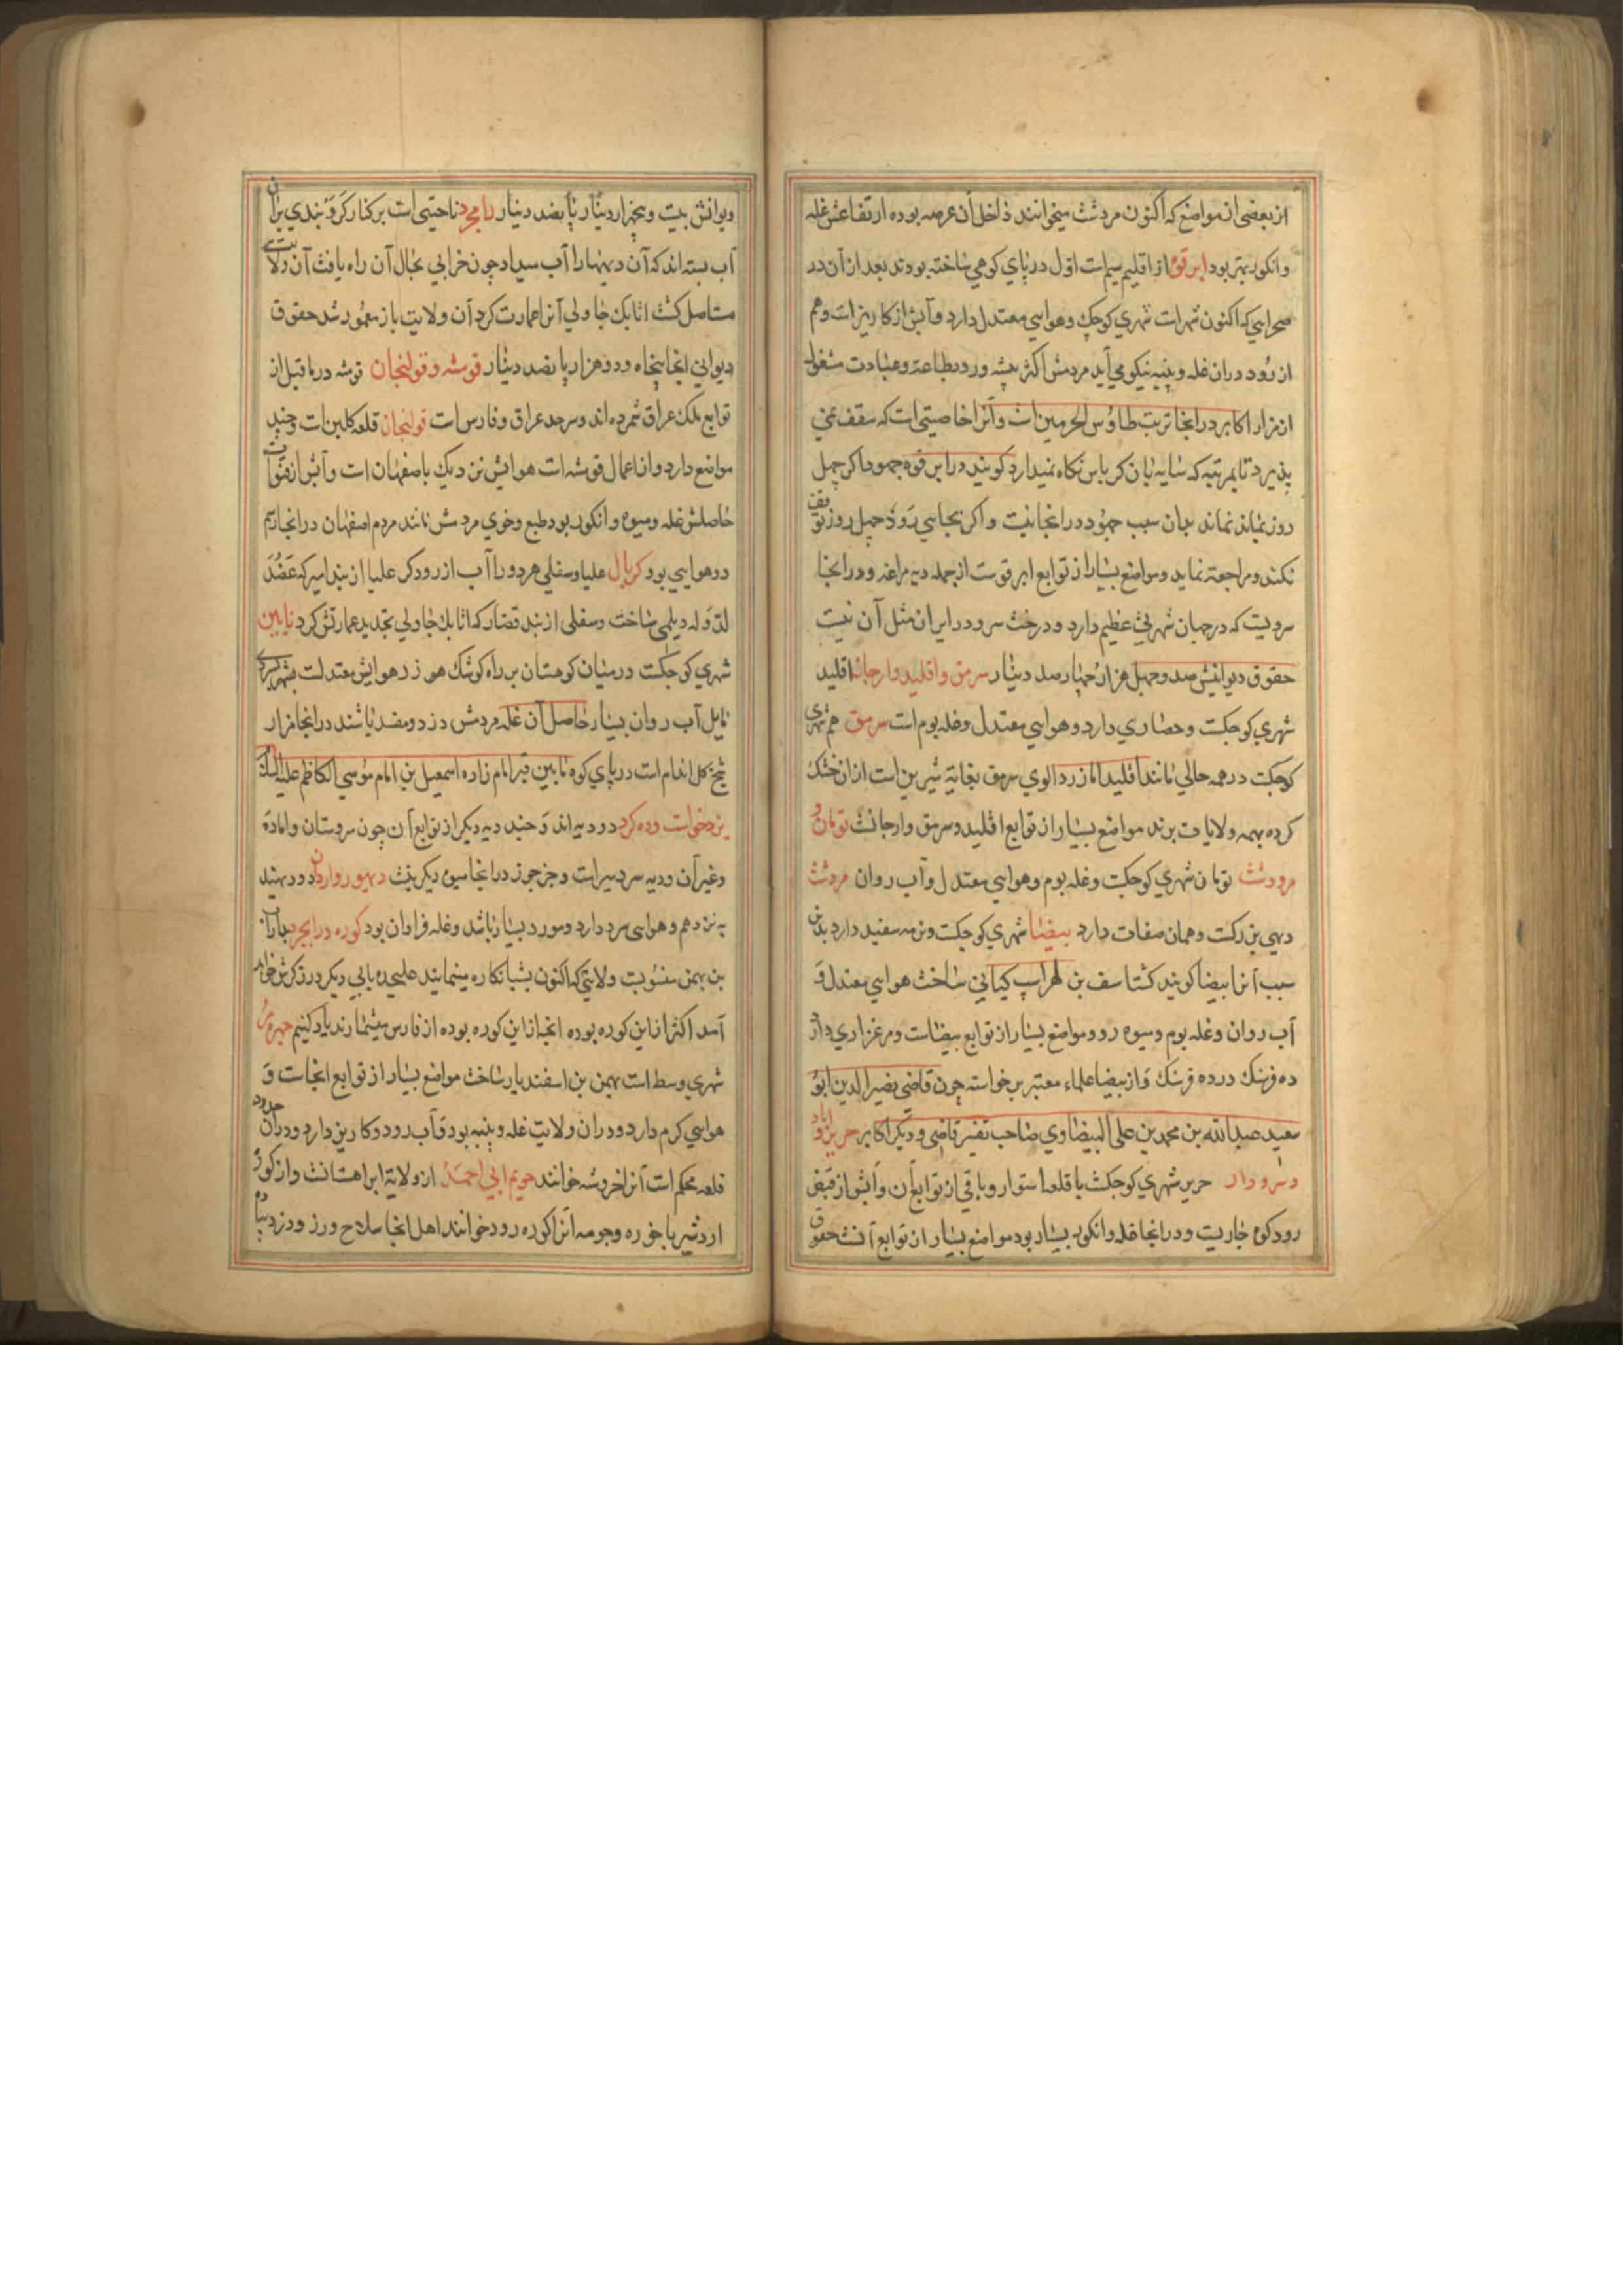 از بعضی از مواضع که اکنون مردشت میخوانند داخل آن عرصه بوده ارتفاعش غله
وانکور بهتر بود ابرقوه از اقلیم سیم است اول در پای کوهی ساخته بودند بعد از آن در
صحرایی که اکنون شهر است شهری کوچک وهوایی معتدل دارد وآبش از کاریز است وهم
از رود دران غله وپنبه نیکو می آید مردمش اکثر پیشه ور وبطاعة وعبادت مشغول
از مزار اکابر در انجا تربت طاوس الحرمین است وآنرا خاصیتی است که سقف نمی
پذیرد تا بمرتبه که سایه بان کرباس نکاه نمیدارد کویند در ابرقوه جهود اکر چهل
روز بماند نماند بدان سبب جهود در انجا نیست و اکر بجایی رود چهل روز توقف
نکنند ومراجعة نماید ومواضع بسیار از توابع ابرقوست از جمله دیه مراغه ودر انجا
سرویست که در جهان شهرتی عظیم دارد ودرخت سرو در ایران مثل آن نیست
حقوق دیوانیش صد وچهل هزار چهار صد دینار سرمق واقلید وارجان اقلید
شهری کوچکست وحصاری دارد وهوایی معتدل وغله بوم است سرمق هم شهری
کوچکست در همه حالی مانند اقلید اما زردالوی سرمق بغایة شیرین است ازان خشک
کرده بهمه ولایات برند مواضع بسیار از توابع اقلید وسرمق وارجانست تومان و
مرودشت تومان شهری کوچکست وغله بوم وهوایی معتدل وآب روان مردشت
دهی بزرکست وهمان صفات دارد بیضا شهری کوچکست وتربه سفید دارد بدین
سبب آنرا بیضا کویند کشتاسف بن لهراسپ کیانی ساخت هوایی معتدل و
آب روان وغله بوم ومیوه رو ومواضع بسیار از توابع بیضاست ومرغزاری دارد
ده فرسنک در ده فرسنک واز بیضا علماء معتبر برخواسته چون قاضی نصیر الدین ابو
سعید عبدالله بن محمد بن علی البیضاوی صاحب تفسیر قاضی ودیکر اکابر
حریر شهری کوچکست با قلعه استوار وباقی از توابع آن وآبش از فیض
رود کوه جاریست ودر انجا غله وانکور بسیار بود مواضع بسیار از توابع آنست حقوق
دیوانش بیست وپنجهزار دینار پانصد دینار رامجرد ناحیتی است بر کنار کر و بندی بران
آب بسته اند که آن دیهها را آب میداد چون خرابی بحال آن راه یافت آن ولایت
مستاصل کشت اتابک جاولی آنرا عمارت کرد آن ولایت باز معمور شد حقوق
دیوانی انجا پنجاه ودو هزار پانصد دینار قوشه وقولنجان قوشه در ماقبل از
توابع ملک عراق شمرده اند وسرحد عراق وفارس است قولنجان قلعه کلین است وچند
مواضع دارد واز اعمال قوشه است هوایش نزدیک باصفهان است وآبش از قنوات
حاصلش غله ومیوه وانکور بود طبع وخوی مردمش مانند مردم اصفهان در انجا زیم
ودر هوایی بود کربال علیا وسفلی هر دو را آب از رود کر علیا از بند امیر که عضد
لدوله دیلمی ساخت وسفلی از بند قصار که اتابک جاولی تجدید عمارتش کرد نایین
شهری کوچکست در میان کوهستان بر راه کوشک هوزر هوایش معتدلست بسردی
مایل آب روان بسیار حاصل آن غله مردمش دزد ومفسد باشند در انجا مزار
شیخ کل اندام است در پای کوه نابین قبر امام زاده اسمعیل بن امام موسی الکاظم علیه السلام
یزدخواست وده کرد دو دیه اند وچند دیه دیکر از توابع آن چون سروستان واماده
وغیر آن ودیه سردسیر است وجز جوز در انجا میوه دیکر نیست دو دیهند
بزرک هم وهوای سرد دارد ومورد بسیار باشد وغله فراوان بود کوره درابجرد بداراب
بن بهمن منسوبست ولایتی که اکنون بشبانکاره مینمایند علیحده بابی دیکر در ذکرش خواهد
آمد اکثر از این کوره بوده انجه از این کوره بوده از فارس میشمارند یاد کنیم جهرم
شهری وسط است بهمن بن اسفندیار ساخت مواضع بسیار از توابع انجاست و
هوایی کرم دارد ودران ولایت غله وپنبه بود وآب رود وکاریز دارد ودران حدود
قلعه محکم است آنرا خروشه خوانند جویم ابی احمد از ولایة ایراهستانست واز کوره
اردشیر باخوره وجومه آنرا کوره رود خوانند اهل انجا سلاح ورز ودزد پیاده